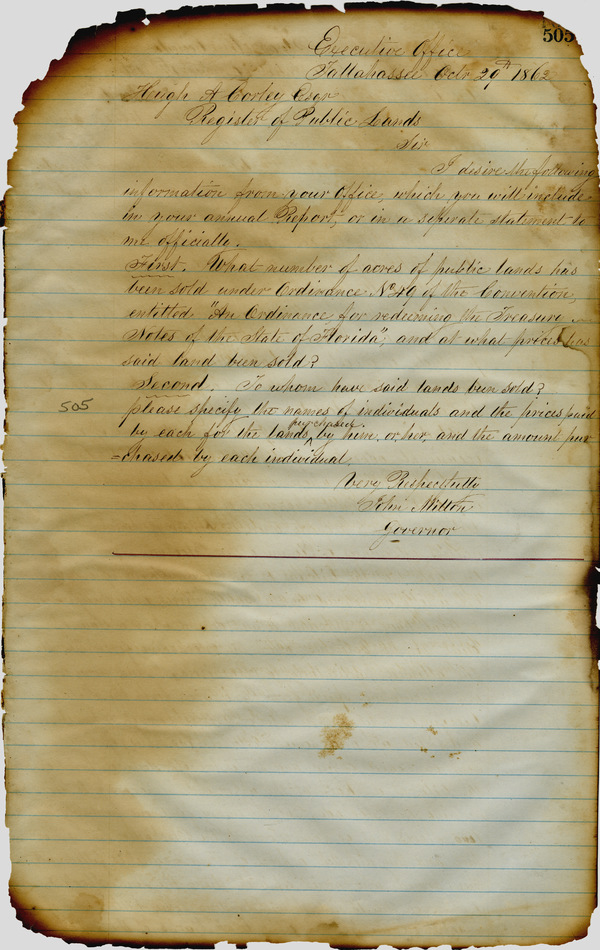 505
Executive Office
Tallahassee Octr 29th 1862
Hugh A Corley Esqr
Register of Public Lands
Sir
I desire the following
information from your Office, which you will include
in your annual Report, or in a seperate statement to
me officially.
First. What number of acres of public lands has
been sold under Ordinance No 49 of the Convention,
entitled "An Ordinance for redeeming the Treasury
Notes of the State of Florida", and at what prices has
said land been sold?
Second. To whom have said lands been sold?
505
please specify the names of individuals and the prices paid
purchased
by each for the lands, by him, or, her, and the amount pur
=chased by each individual.
Very Respectfully
John Milton
Governor